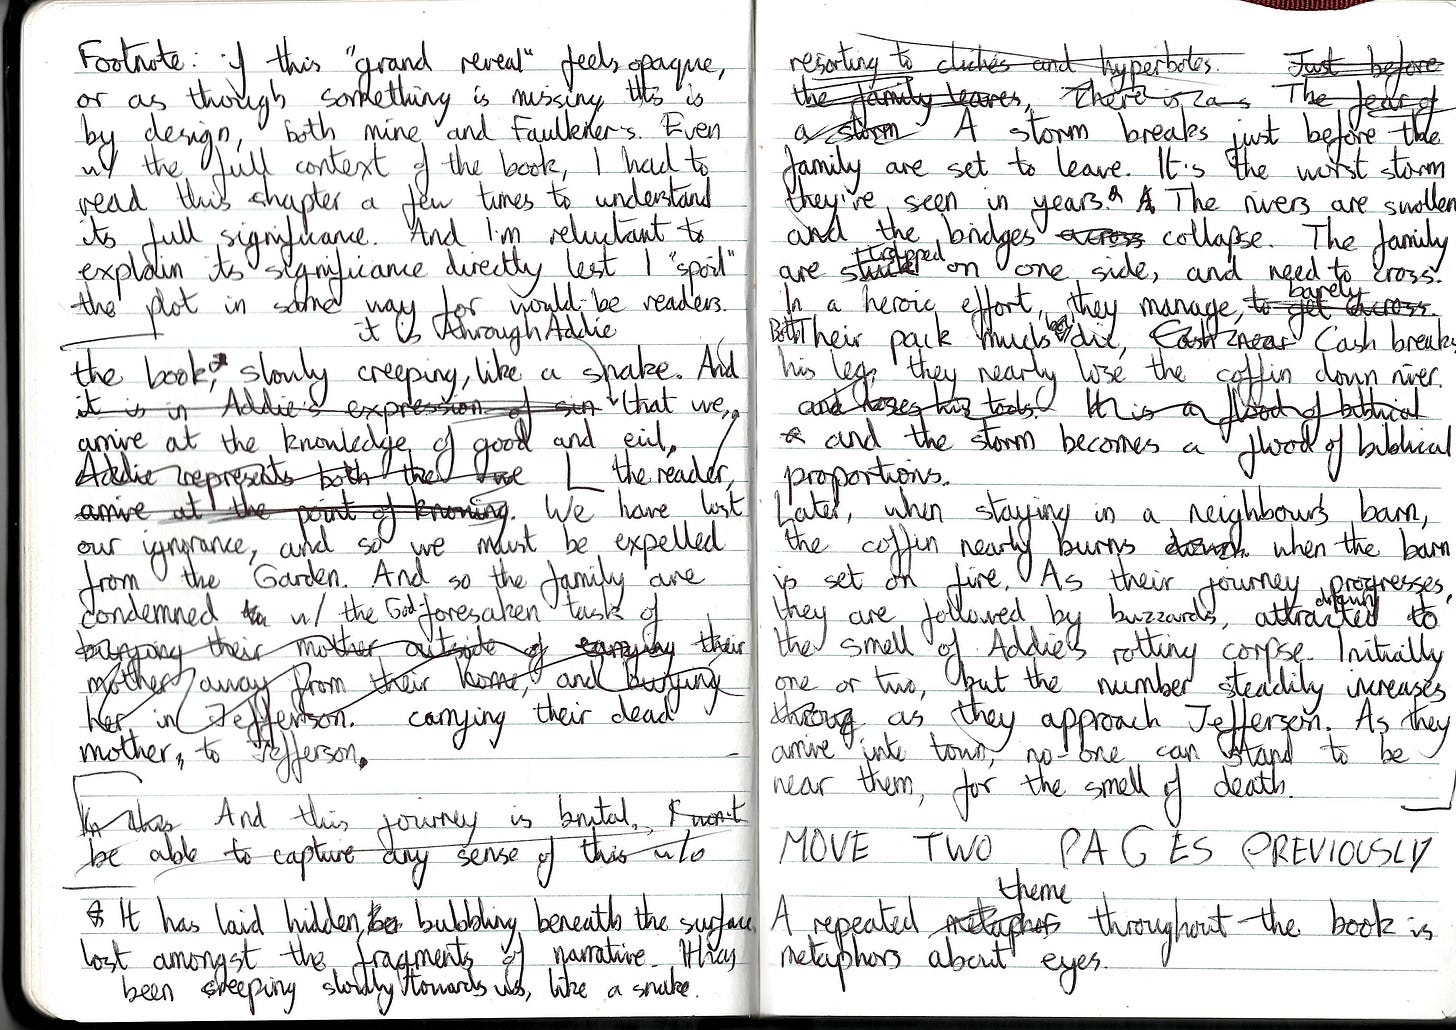 Footnote: if this "grand reveal" feels opaque,
or as though something is missing this is
by design, both mine and Faulkener's. Even
w/ the full context of the book, I had to
read this chapter a few times to understand
its full significance. And I'm reluctant to
explain its significance directly lest I "spoil"
the plot in some way for would-be readers.
it is through Addie
the book, slowly creeping, like a snake. And
it is in Addie's expression of sin that we,
arrive at the knowledge of good and evil,
Addie represents both the we the reader,
arrive at the point of knowing. We have lost
our ignorance, and so we must be expelled
from the Garden. And so the family are
condemned w/ the God-foresaken task of
burying their mother outside of carrying their
mother away from their home, and burying
her in Jefferson. carrying their dead
mother, to Jefferson.
In this And this journey is brutal, I won't
be able to capture any sense of this w/o
It has laid hidden, bubbling beneath the surface
lost amongst the fragments of narrative. It has
been creeping slowly towards us, like a snake.
resorting to clichés and hyperboles. Just before
the family leaves, There is The fear of
a storm A storm breaks just before the
family are set to leave. It's the worst storm
they're seen in years. The rivers are swollen
and the bridges across collapse. The family
trapped
are stuck on one side, and need to cross.
barely
In a heroic effort, they manage, to get across.
Both Their pack muels die, Cash breaks
his leg, they nearly lose the coffin down river.
and loses his tools. It is a flood of biblical
and the storm becomes a flood of biblical
proportions.
Later, when staying in a neighbour's barn,
the coffin nearly burns down when the barn
is set on fire. As their journey progresses,
drawn
they are followed by buzzards, attracted to
the smell of Addie's rotting corpse. Initially
one or two, but the number steadily increases
throug as they approach Jefferson. As they
arrive into town, no-one can stand to be
near them, for the smell of death.
MOVE TWO PAGES PREVIOUSLY
theme
A repeated metaphor throughout the book is
metaphors about eyes.